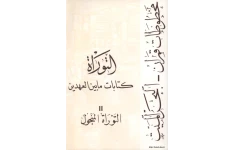 مخطوطات قمران - البحر الميت
التوراة
كتابات ما بين العهدين
II
التوراة المنحول